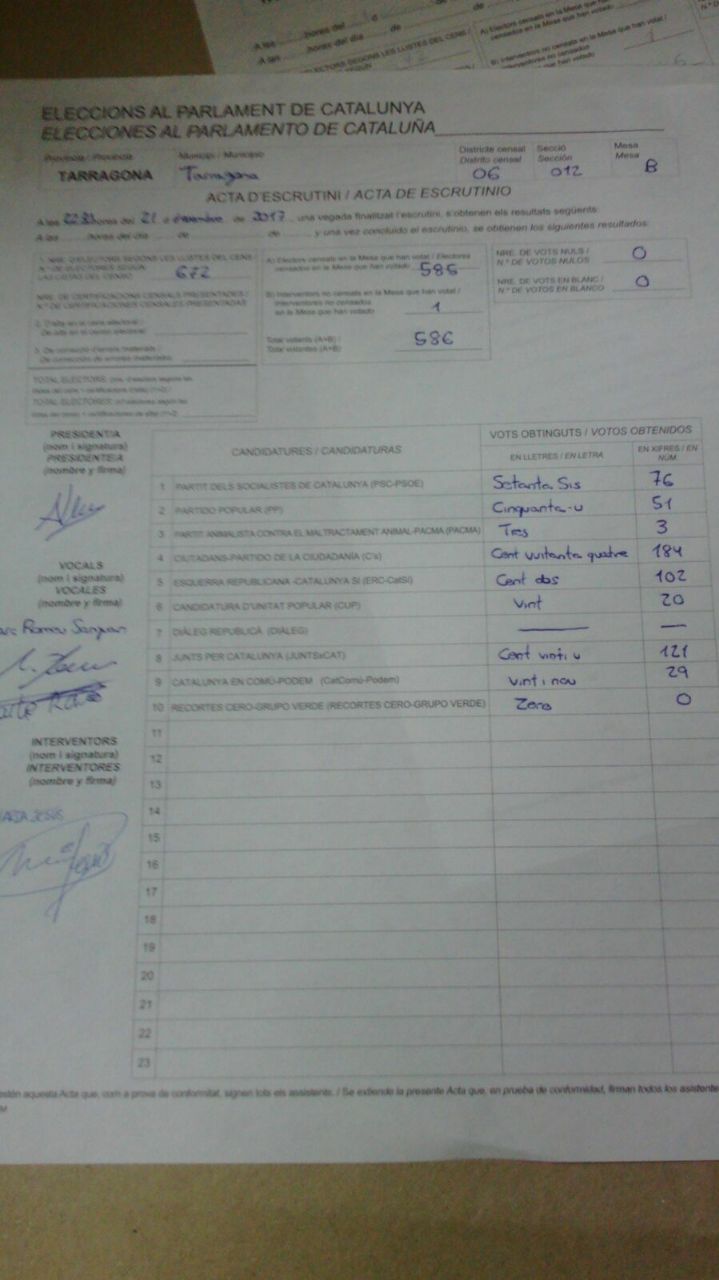 ELECCIONS AL PARLAMENT DE CATALUNYA
ELECCIONES AL PARLAMENTO DE CATALUÑA
Província / Provincia Municipi / Municipio Districte censal Secció Mesa
Distrito censal Sección Mesa
TARRAGONA Tarragona 06 012 B
ACTA D'ESCRUTINI / ACTA DE ESCRUTINIO
A les hores del 21 d desembre de 2017, una vegada finalitzat l'escrutini, s'obtenen els resultats següents:
A las hores del día de de y una vez concluido el escrutinio, se obtienen los siguientes resultados:
1. NRE. D'ELECTORS SEGONS LES LLISTES DEL CENS /
N.º DE ELECTORES SEGÚN
LAS LISTAS DEL CENSO 672
NRE. DE CERTIFICACIONS CENSALS PRESENTADES /
N.º DE CERTIFICACIONES CENSALES PRESENTADAS
A) Electors censats en la Mesa que han votat / Electores
censados en la Mesa que han votado 585
B) Interventors no censats en la Mesa que han votat /
Interventores no censados
en la Mesa que han votado 1
Total votants (A+B) /
Total votantes (A+B) 586
NRE. DE VOTS NULS /
N.º DE VOTOS NULOS 0
NRE. DE VOTS EN BLANC /
N.º DE VOTOS EN BLANCO 0
PRESIDENT/A
(nom i signatura)
PRESIDENTE/A
(nombre y firma)
VOCALS
(nom i signatura)
VOCALES
(nombre y firma)
INTERVENTORS
(nom i signatura)
INTERVENTORES
(nombre y firma)
CANDIDATURES / CANDIDATURAS VOTS OBTINGUTS / VOTOS OBTENIDOS
EN LLETRES / EN LETRA EN XIFRES / EN NÚM.
1 PARTIT DELS SOCIALISTES DE CATALUNYA (PSC-PSOE) Setanta Sis 76
2 PARTIDO POPULAR (PP) Cinquanta-u 51
3 PARTIT ANIMALISTA CONTRA EL MALTRACTAMENT ANIMAL-PACMA (PACMA) Tres 3
4 CIUTADANS-PARTIDO DE LA CIUDADANÍA (C's) Cent vuitanta quatre 184
5 ESQUERRA REPUBLICANA -CATALUNYA SI (ERC-CatSI) Cent dos 102
6 CANDIDATURA D'UNITAT POPULAR (CUP) Vint 20
7 DIÀLEG REPUBLICÀ (DIÀLEG) — —
8 JUNTS PER CATALUNYA (JUNTSxCAT) Cent vinti u 121
9 CATALUNYA EN COMÚ-PODEM (CatComú-Podem) vint i nou 29
10 RECORTES CERO-GRUPO VERDE (RECORTES CERO-GRUPO VERDE) Zero 0
11
12
13
14
15
16
17
18
19
20
21
22
23
aquesta Acta que, com a prova de conformitat, signen tots els assistents. / Se extiende la presente Acta que, en prueba de conformidad, firman todos los asistente